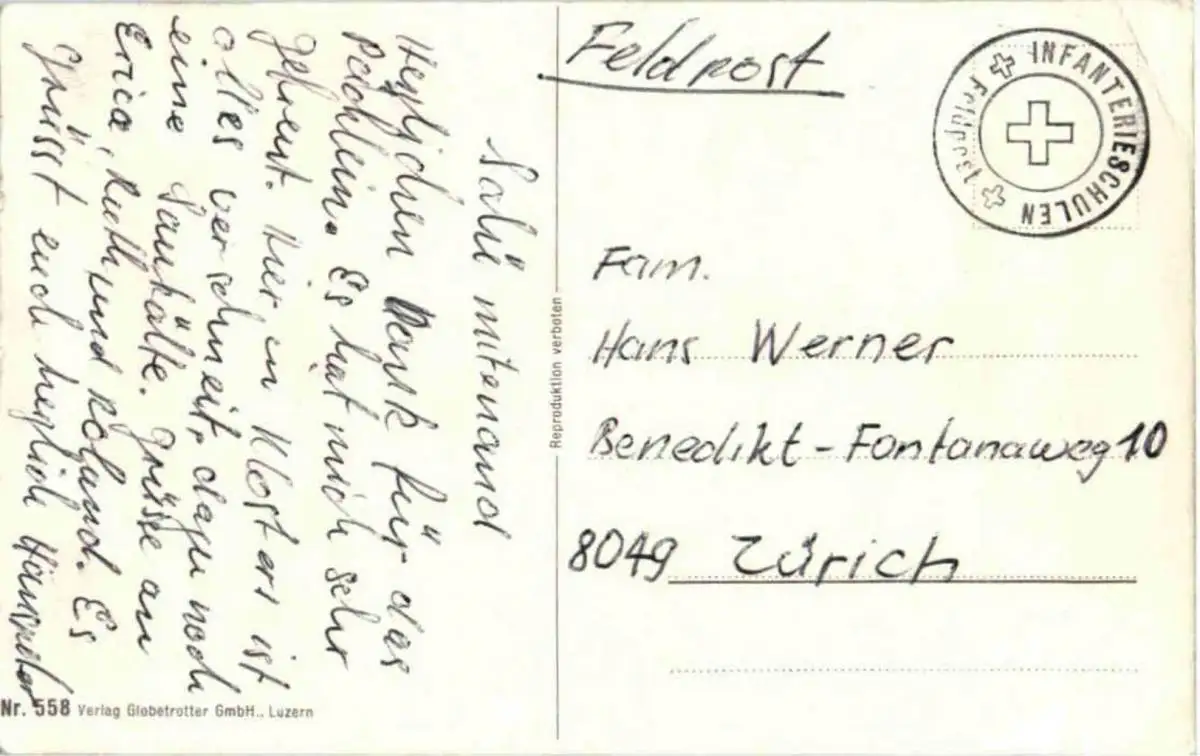 Salü mitenand
Herzlichen Dank für das
Päcklein. Es hat mich sehr
gefreut. Hier in Klosters ist
alles verschneit, dazu noch
eine Saukälte. Grüsse an
Erica, Ruth und Roland. Es
grüsst euch herzlich Hanspeter
Nr. 558 Verlag Globetrotter GmbH., Luzern
Reproduktion verboten
Feldpost
INFANTERIESCHULEN
Feldpost
Fam.
Hans Werner
Benedikt-Fontanaweg 10
8049 Zürich